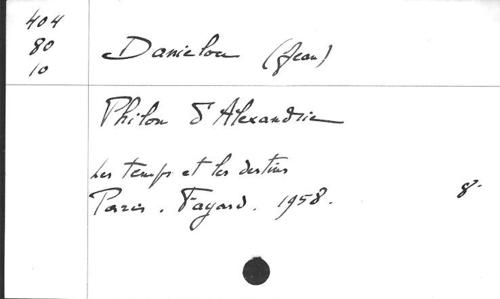 404
80
10
Danielou (Jean)
Philon d'Alexandrie
Les temps et les destins
Paris. Fayard. 1958. 8°